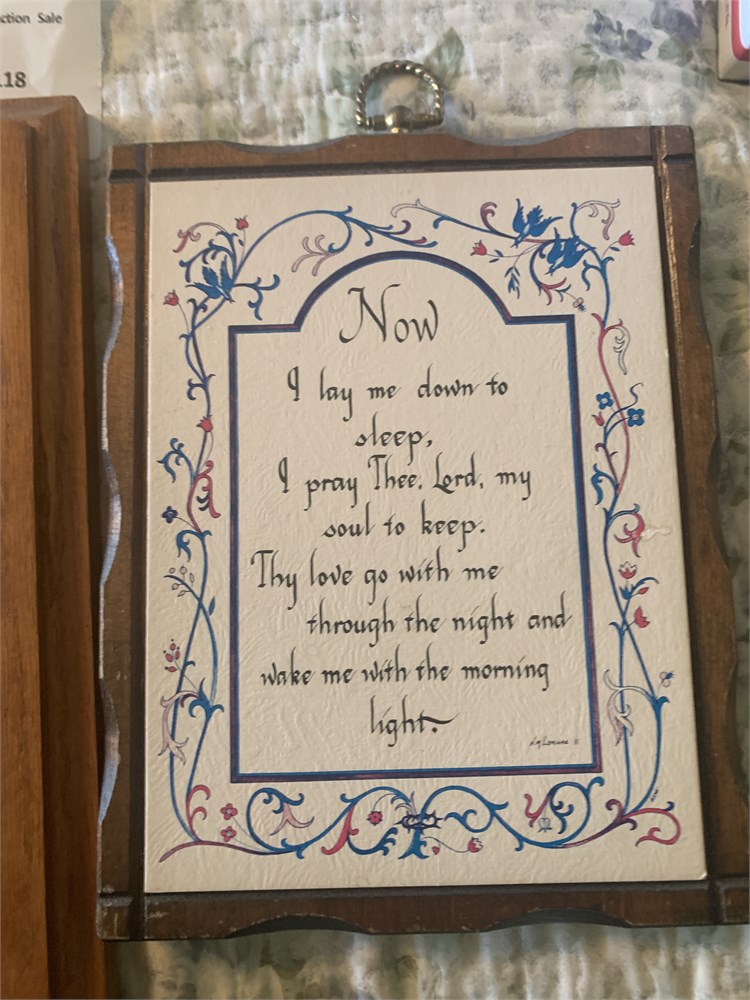 ction Sale
118
Now
I lay me down to
sleep,
I pray Thee, Lord, my
soul to keep.
Thy love go with me
through the night and
wake me with the morning
light.